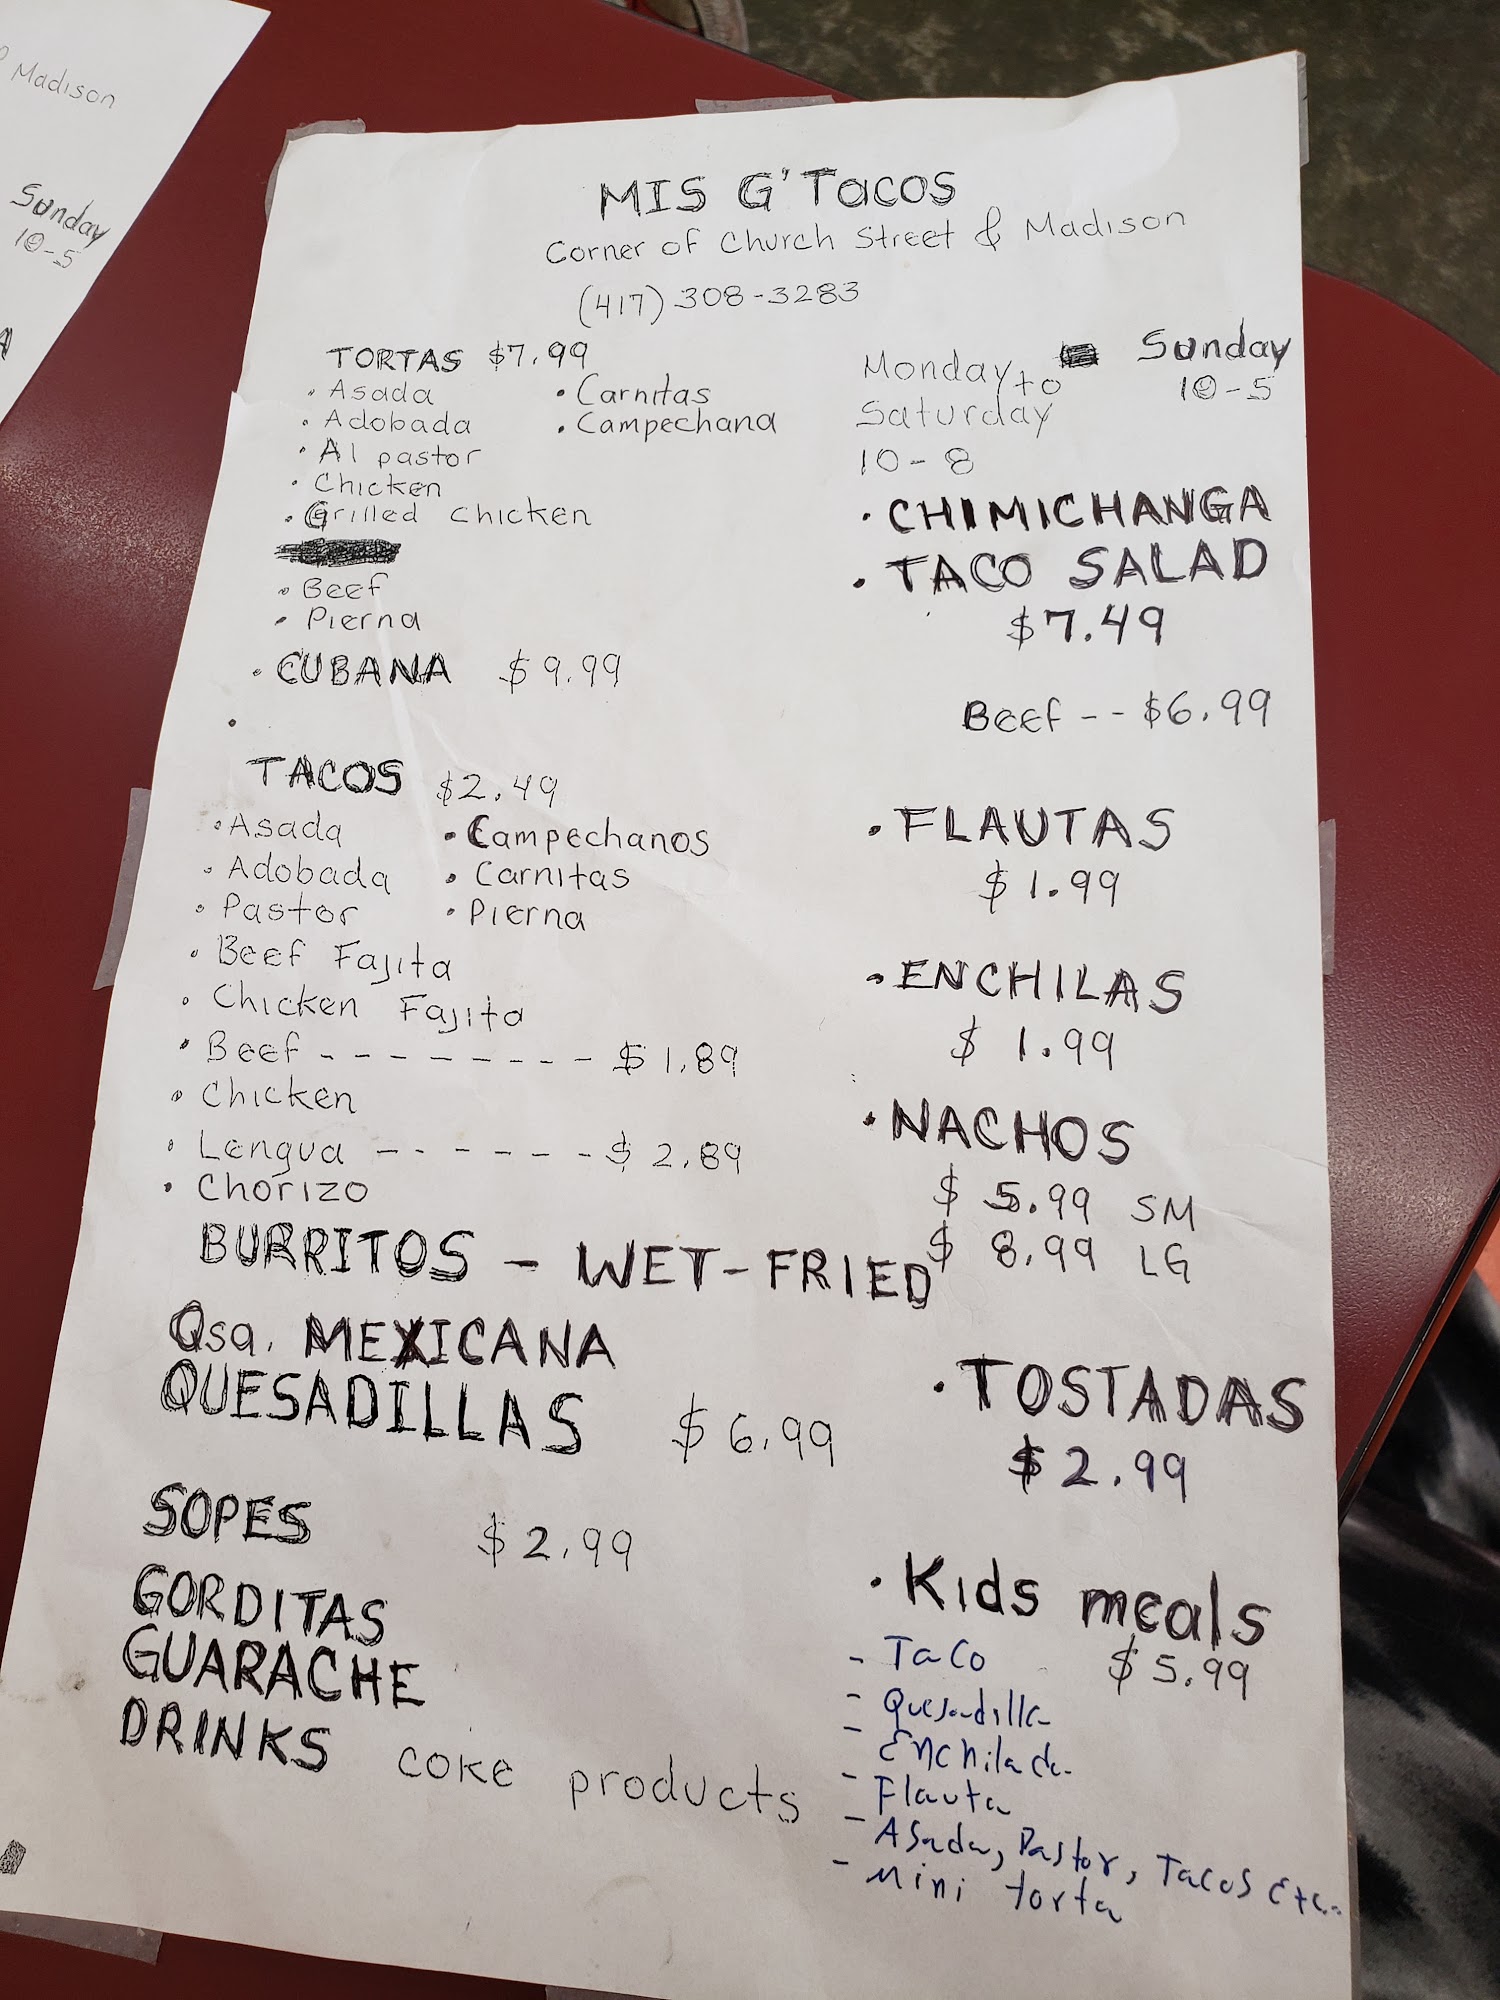 Madison
Sunday
10-5
MIS G'Tacos
Corner of Church Street & Madison
(417) 308-3283
TORTAS $7.99
• Asada
• Carnitas
• Adobada
• Campechana
• Al pastor
• Chicken
• Grilled chicken
• Beef
• Pierna
• CUBANA $9.99
•
Monday to
Saturday
10-8
Sunday
10-5
TACOS $2.49
• Asada
• Campechanos
• Adobada
• Carnitas
• Pastor
• Pierna
• Beef Fajita
• Chicken Fajita
• Beef - - - - - - - - - $1.89
• Chicken
• Lengua - - - - - - - $2.89
• Chorizo
BURRITOS - WET-FRIED
Qsa. MEXICANA
QUESADILLAS $6.99
SOPES $2.99
GORDITAS
GUARACHE
DRINKS coke products
• CHIMICHANGA
• TACO SALAD
$7.49
Beef -- $6.99
• FLAUTAS
$1.99
• ENCHILAS
$1.99
• NACHOS
$5.99 SM
$8.99 LG
• TOSTADAS
$2.99
• Kids meals
$5.99
- Taco
- Quesadilla
- Enchilada
- Flauta
- Asada, Pastor, Tacos Etc..
- Mini torta